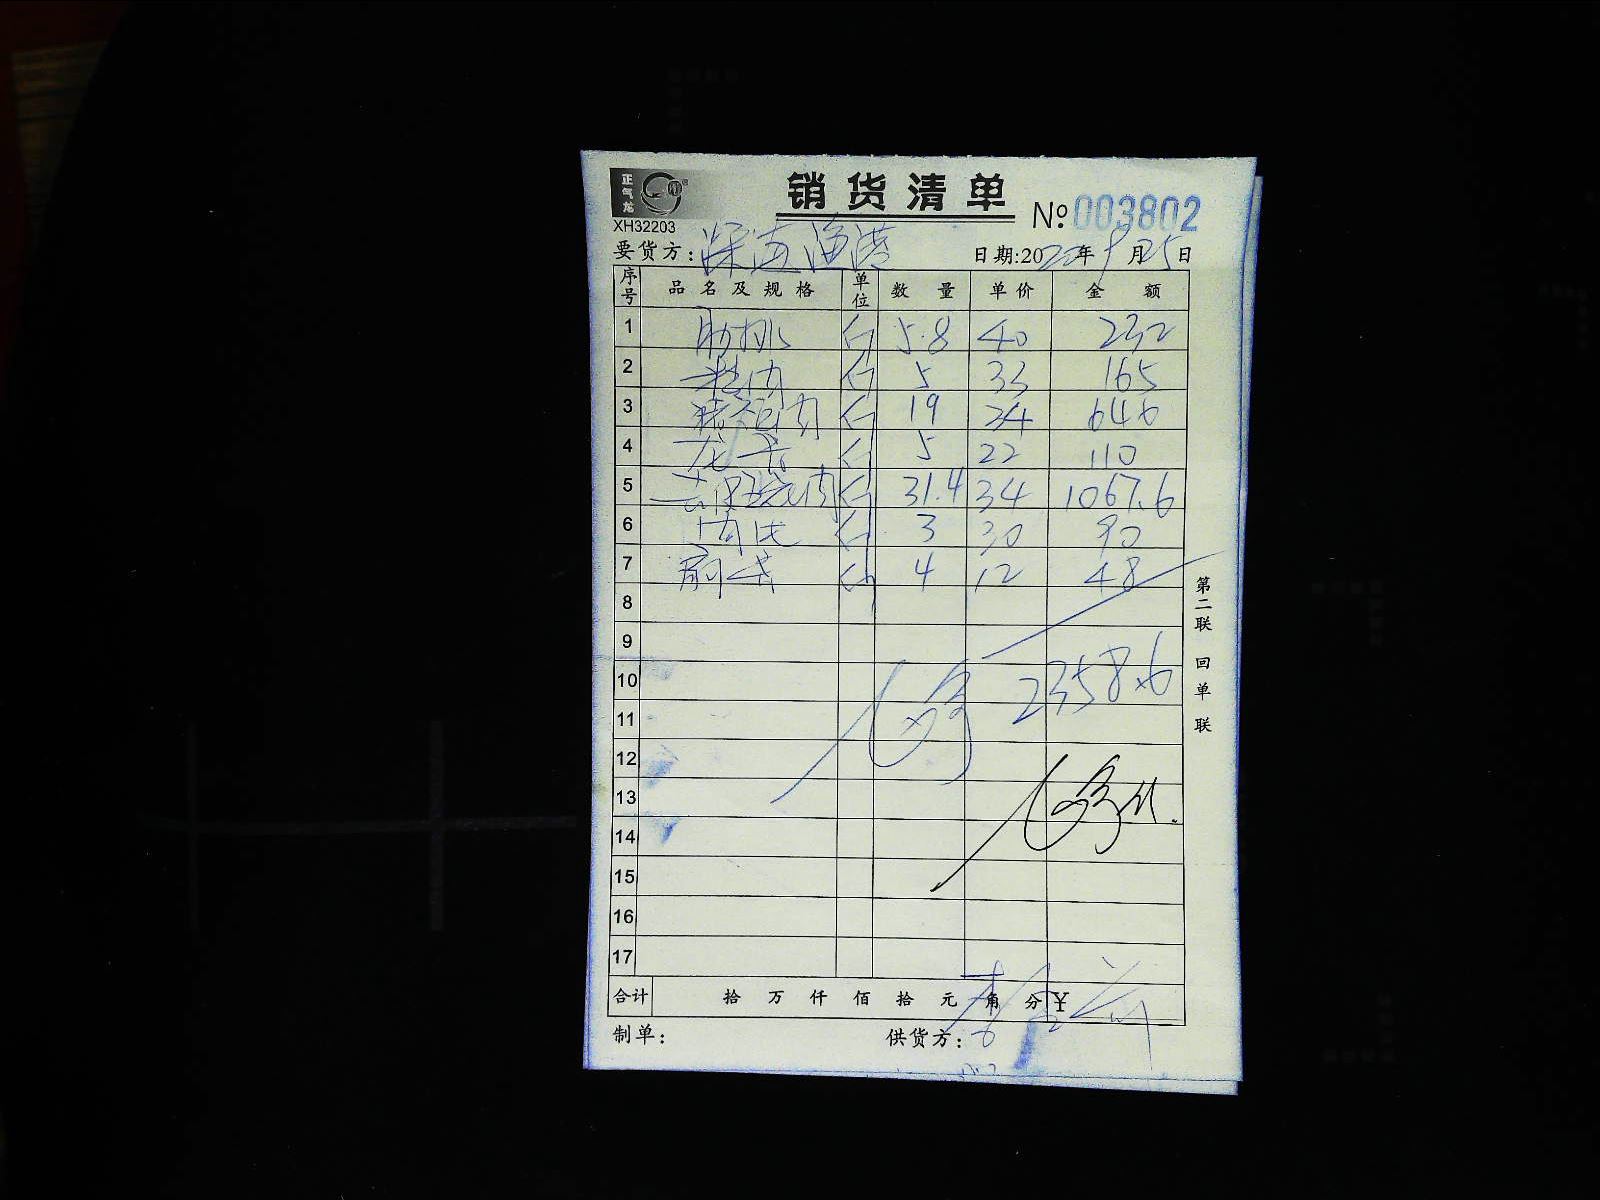 正气龙
销货清单
XH32203
№003802
要货方: 深海渔港 日期:2022年9月25日
序号 品名及规格 单位 数量 单价 金额
1 肋排 斤 5.8 40 232
2 精肉 斤 5 33 165
3 肉 斤 19 34 646
4 龙骨 斤 5 22 110
5 肉 斤 31.4 34 1067.6
6 斤 3 30 90
7 扇骨 斤 4 12 48
8
9
10 2358.6
11
12
13
14
15
16
17
合计 拾 万 仟 佰 拾 元 角 分 ¥
制单: 供货方:
第二联 回单联